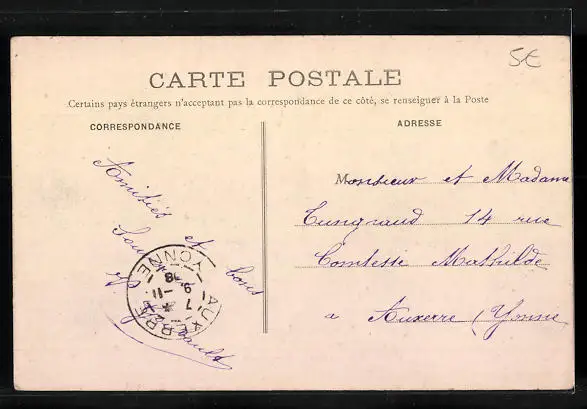 5€
CARTE POSTALE
Certains pays étrangers n'acceptant pas la correspondance de ce côté, se renseigner à la Poste
CORRESPONDANCE
ADRESSE
Amitiés et bons
Monsieur et Madame
14 rue
Comtesse Mathilde
a Auxerre (Yonne
AUXERRE
YONNE